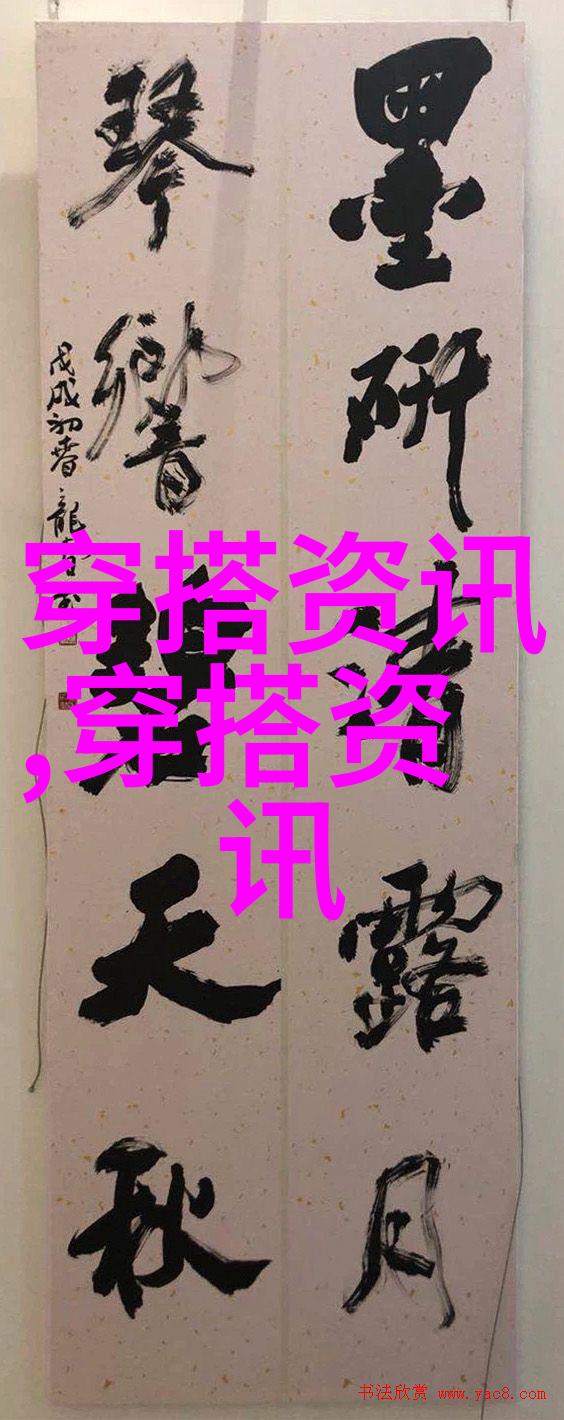 墨研清露月
琴響碧天秋
戊戌初春龍
穿搭资讯
,穿搭资
讯
书法欣赏 www.yac8.com